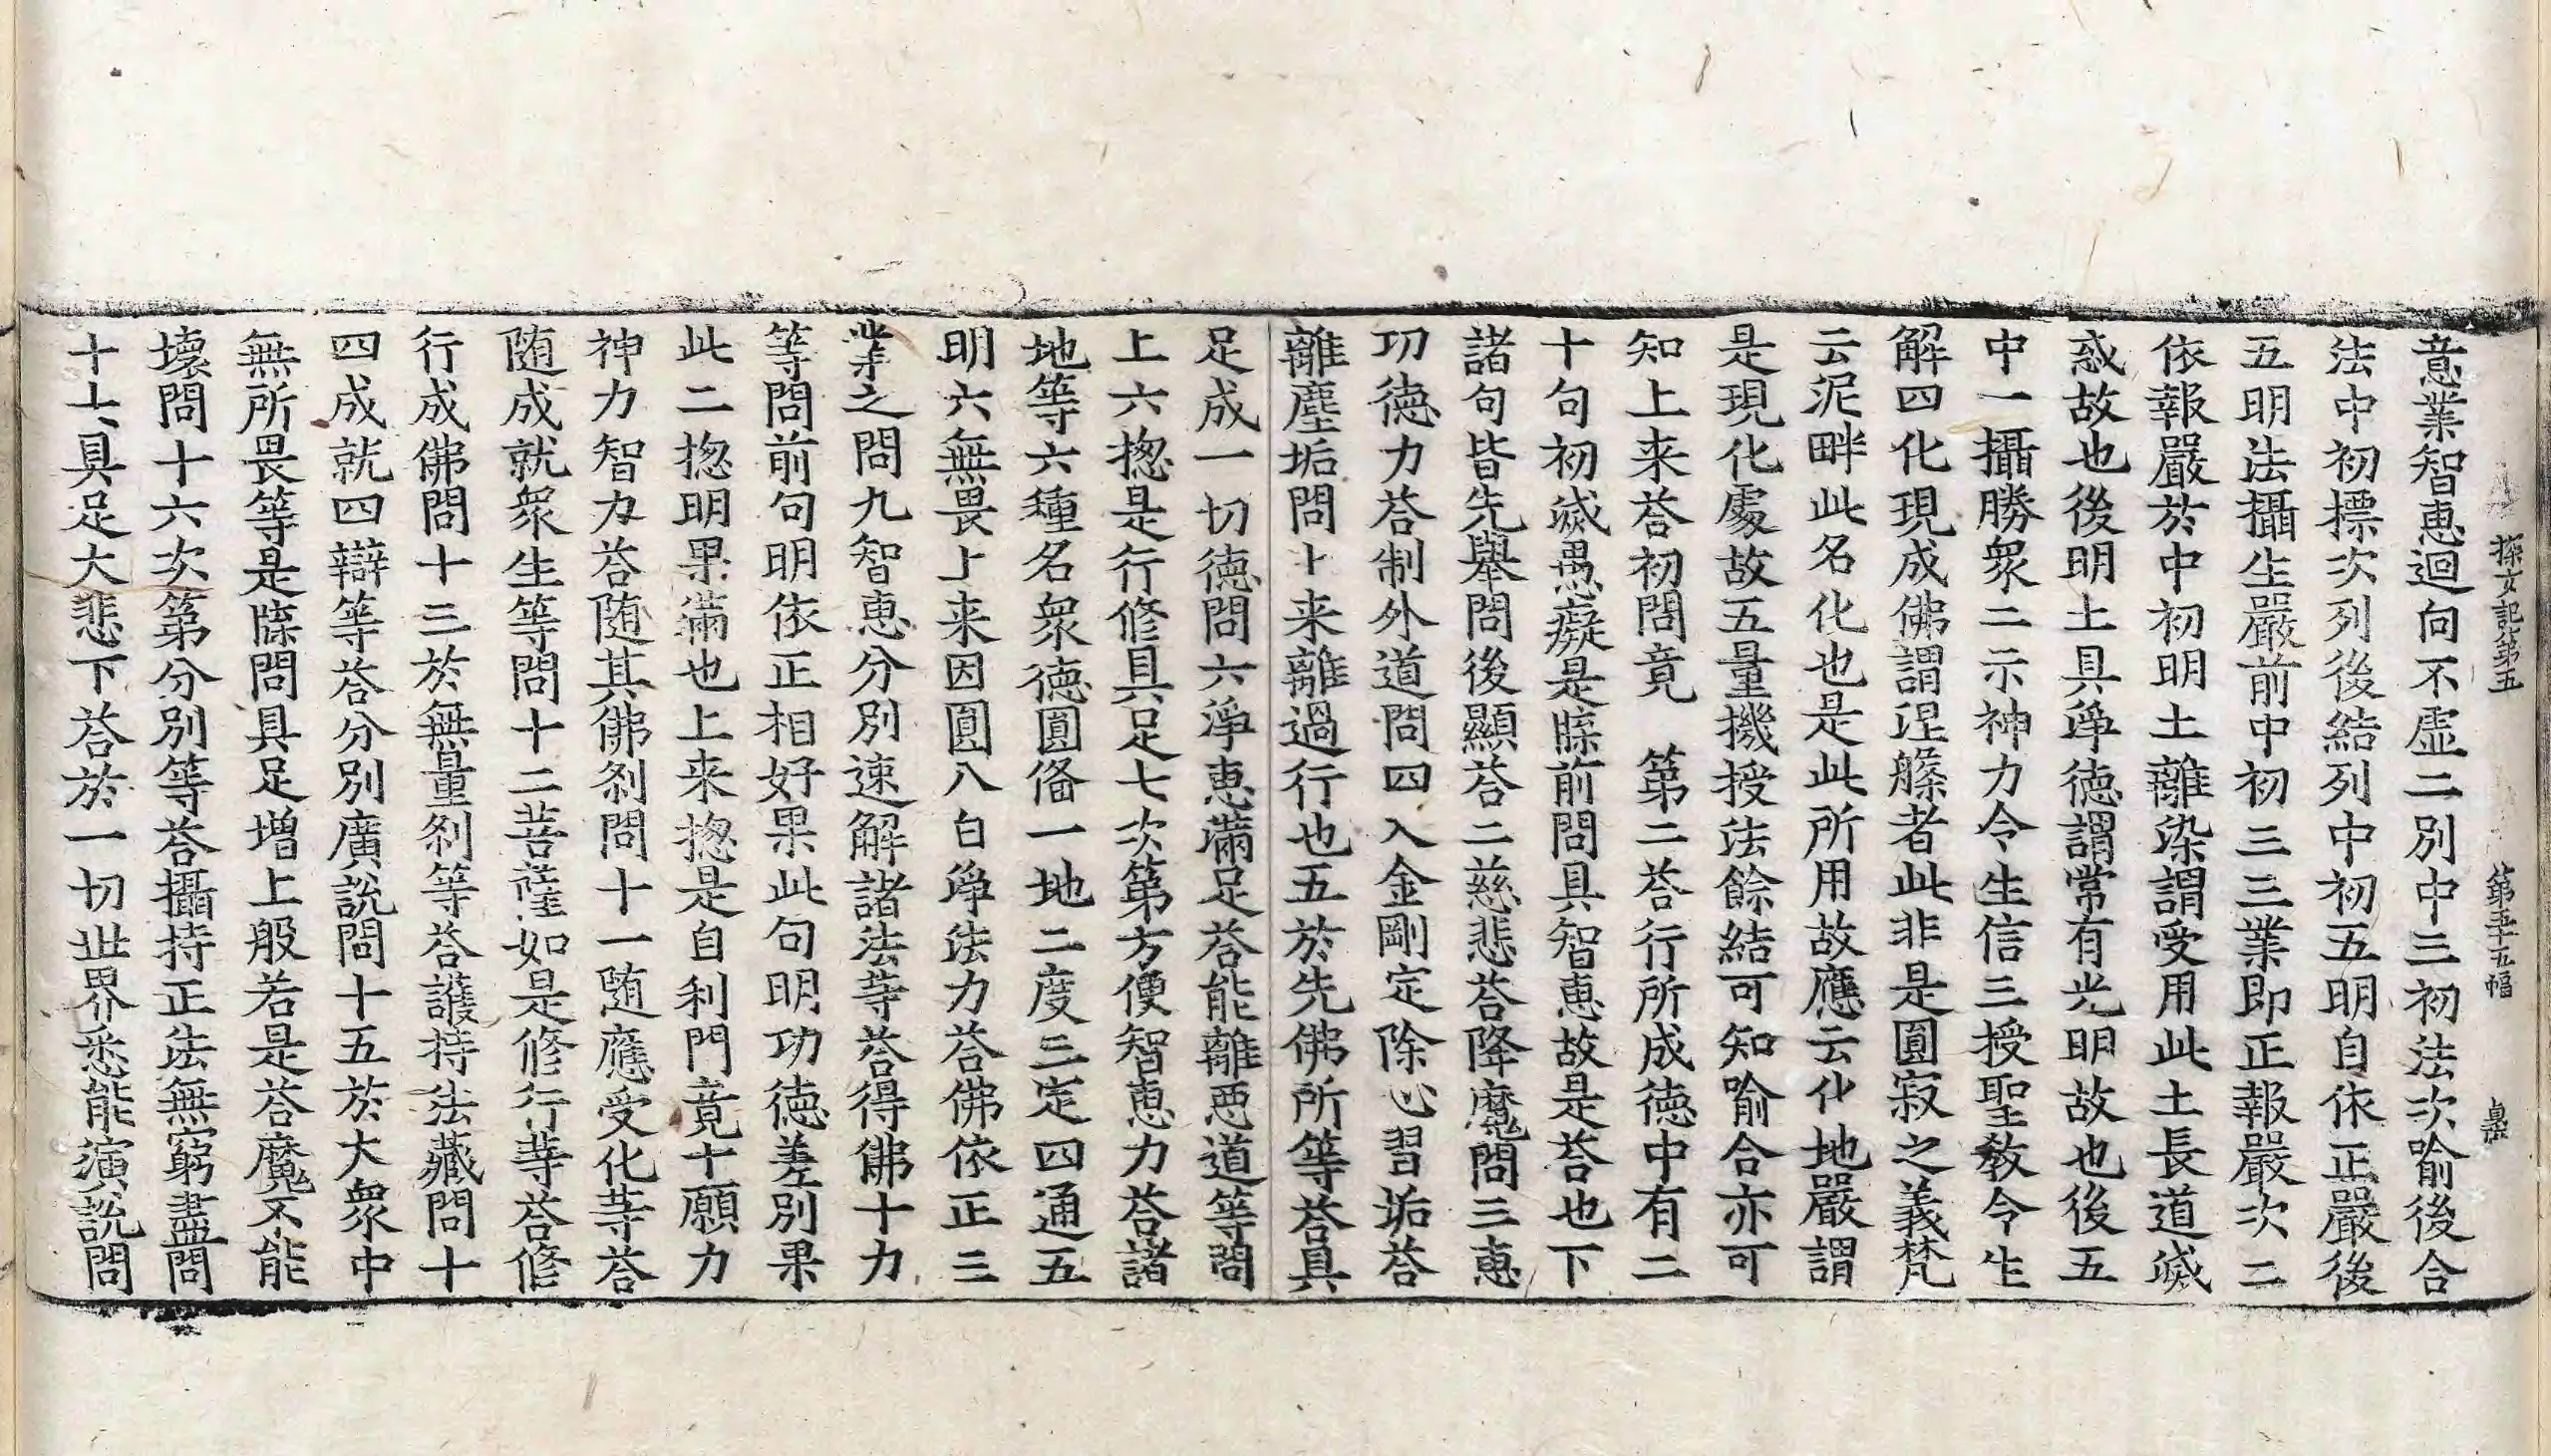 探玄記第五 第五十五幅 鼎
意業智恵迴向不虛二別中三初法次喻後合
法中初標次列後結列中初五明自依正嚴後
五明法攝生嚴前中初三三業即正報嚴次二
依報嚴於中初明土離染謂受用此土長道滅
惑故也後明土具淨德謂常有光明故也後五
中一攝勝衆二示神力令生信三授聖教令生
解四化現成佛謂涅槃者此非是圓寂之義梵
云泥畔此名化也是此所用故應云化地嚴謂
是現化處故五量機授法餘結可知喻合亦可
知上来荅初問竟 第二荅行所成德中有二
十句初滅愚癡是牒前問具智恵故是荅也下
諸句皆先舉問後顯荅二慈悲荅降魔問三恵
功德力荅制外道問四入金剛定除心習垢荅
離塵垢問上来離過行也五於先佛所等荅具
足成一切德問六淨恵滿足荅能離惡道等問
上六揔是行修具足七次第方便智恵力荅諸
地等六種名衆德圓俻一地二度三定四通五
明六無畏上来因圓八白淨法力荅佛依正三
業之問九智恵分別速解諸法等荅得佛十力
等問前句明依正相好果此句明功德差別果
此二揔明果滿也上来揔是自利門竟十願力
神力智力荅随其佛刹問十一随應受化等荅
随成就衆生等問十二菩薩如是修行等荅修
行成佛問十三於無量刹等荅護持法藏問十
四成就四辯等荅分別廣說問十五於大衆中
無所畏等是牒問具足增上般若是荅魔不能
壞問十六次第分別等荅攝持正法無窮盡問
十七具足大悲下荅於一切世界悉能演說問